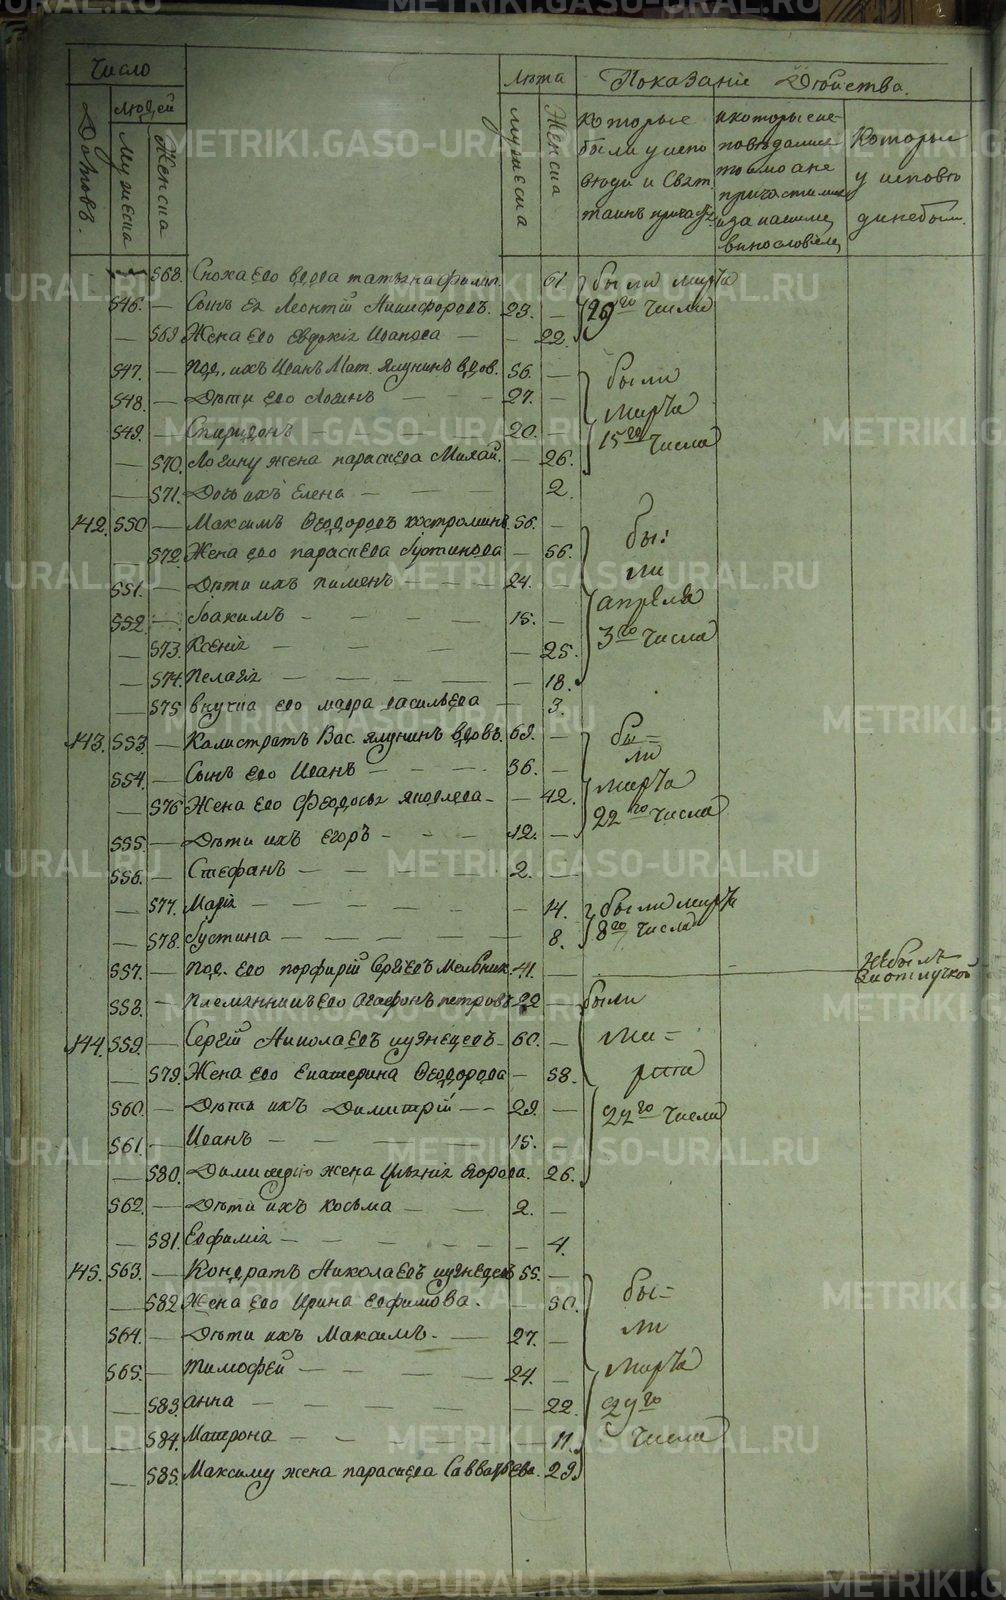 Число
Лѣта
Показанiе Дѣйства.
Домовъ.
Людей
Мужеска
Женска
мужеска
Женска
которые были у исповѣди и Свят. таинъ причас.
и которые исповѣдались токмо а не причастились и за какими винословiем
Которые у исповѣди небыли.
568. Сноха его вдова татьяна филип. 61. были марта
546. — Сынъ ея Леонтiй Никифоровъ. 23. — 29го числа
— 569 Жена его Евдокiя Иванова — — 22.
547. — Под. ихъ Иванъ Мат. Ялунинъ вдов. 56. — были
548. — Дѣти его Логинъ — — — 27. — марта
549. — Спиридонъ — — — 20. — 15го числа
— 570. Логину жена параскева Михай. — 26.
— 571. Дочь ихъ Елена — — — 2.
142. 550 — Максимъ Ѳеодоровъ костроминъ. 56. — бы:
— 572 Жена его параскева Густинова — 56. ли
551. — Дѣти ихъ пименъ — — — 24. — апреля
552. — Iоакимъ — — — — 15. — 3го числа
— 573. Ксенiя — — — — 25.
— 574. Пелагiя — — — — 18.
— 575 внучка его мавра васильева — 3.
143. 553. — Калистратъ Вас. ялунинъ вдовъ. 69. — бы=
554. — Сынъ его Иванъ — — — 36. — ли
— 576 Жена его Феодосья яковлева — — 42. марта
555. — Дѣти ихъ Егоръ — — — 12. — 22го числа
556. — Стефанъ — — — — 2.
— 577. Марiя — — — — 14. были марта
— 578. Густина — — — — 8. 8го числа
557. — Под. его порфирiй Сергеевъ Мельник. 41. — Небылъ
за отлучкой
558. — Племянникъ его Агафонъ петровъ 22 — были
144. 559. — Сергiй Николаевъ кузнецовъ — 60. — ма=
— 579. Жена его Екатерина Ѳеодорова — 58. рта
560. — Дѣти ихъ Димитрiй — — 29. — 22го числа
561. — Иванъ — — — — 15. —
— 580. Димитрiю жена Ѵегорова. 26.
562. — Дѣти ихъ косьма — — 2. —
— 581. Евфимiя — — — — 4.
145. 563. — Кондратъ Николаевъ кузнецовъ 55. —
— 582 Жена его Ирина евфимова. — 50. бы=
564. — Дѣти ихъ Максимъ. — 27. — ли
565. — тимофей — — — 24. — марта
— 583. анна — — — — 22. 29го
— 584. Матрона — — — — 11. числа
— 585. Максиму жена параскева Савватѣева. 29.
METRIKI.GASO-URAL.RU